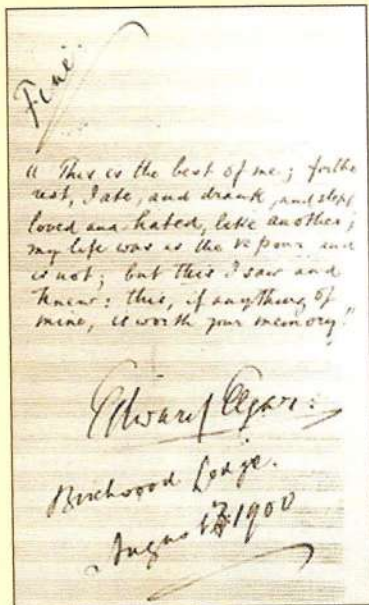 Fine.
"This is the best of me; for the
rest, I ate, and drank, and slept,
loved and hated, like another;
my life was as the vapour and
is not; but this I saw and
knew: this, if anything of
mine, is worth your memory."
Edward Elgar:
Birchwood Lodge.
August 3 1900